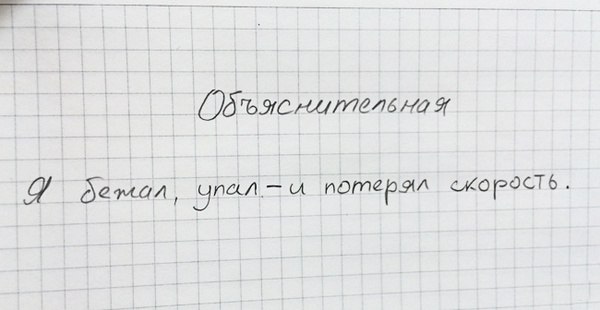 Объяснительная
Я бежал, упал – и потерял скорость.